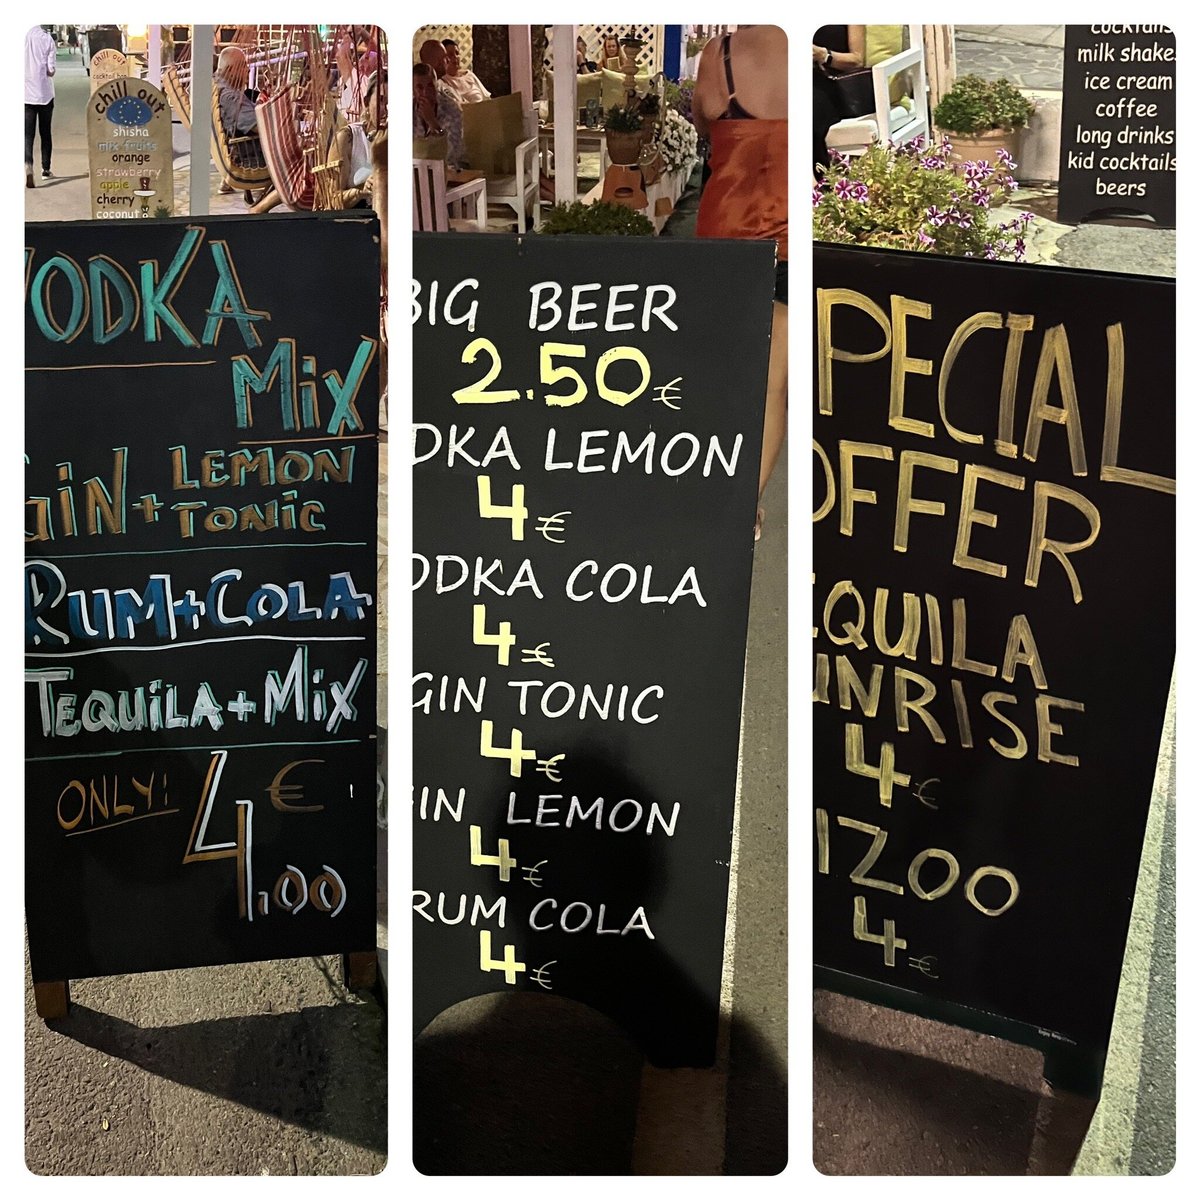 chill out
cocktail bar
chill out
shisha
milk fruits
orange
strawberry
apple
cherry
coconut
VODKA
MiX
GiN + LEMON
TONiC
RUM+COLA
TEQUiLA+MiX
ONLY: 4,00 €
BIG BEER
2.50€
DKA LEMON
4€
ODKA COLA
4€
GIN TONIC
4€
GIN LEMON
4€
RUM COLA
4€
cocktails
milk shake
ice cream
coffee
long drinks
kid cocktails
beers
SPECIAL
OFFER
EQUILA
UNRISE
4€
IZOO
4€